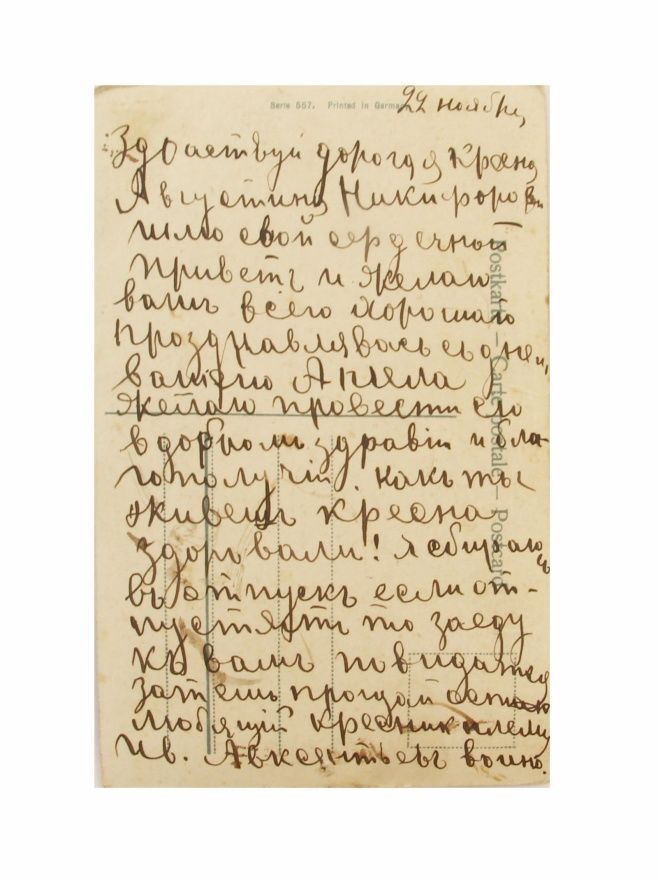 Serie 557. Printed in Germany
22 ноября
Здраствуй дорогая Кресна
Августина Никифоров
шлю свой сердечной
приветъ и желаю
вамъ всего хорошаго
проздравляю васъ съ днем
вашего Ангела
желаю провести его
в добромъ здравіи и бла-
гополучіи. какъ ты
живешъ кресна
здорова ли! я сбираюсь
въ отпускъ если от-
пустятъ то заеду
къ вамъ повидатся
затемъ прощай
любящій кресник и племя
Ив. Авксентьевъ
Postkarte – Carte postale – Postcard